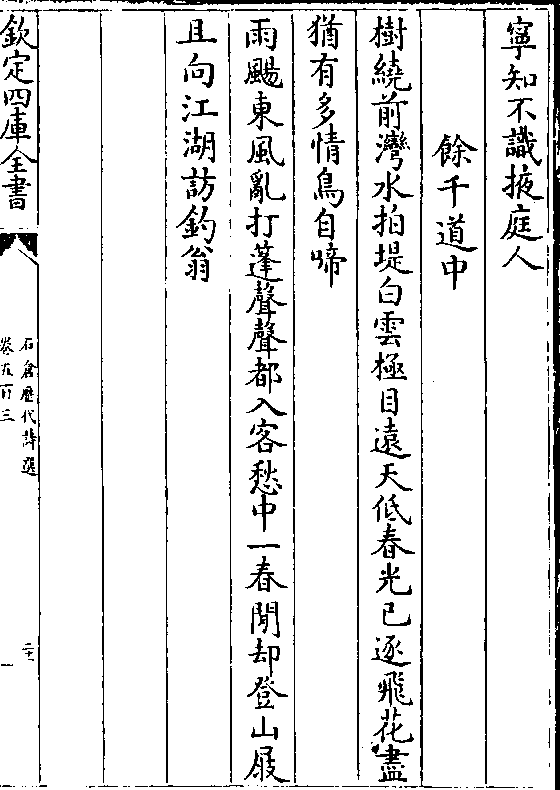 寧知不識掖庭人
餘千道中
樹繞前灣水拍堤白雲極目遠天低春光已逐飛花盡
猶有多情鳥自啼
雨颺東風亂打蓬聲聲都入客愁中一春閒却登山屐
且向江湖訪釣翁
欽定四庫全書
石倉歷代詩選
卷五百三